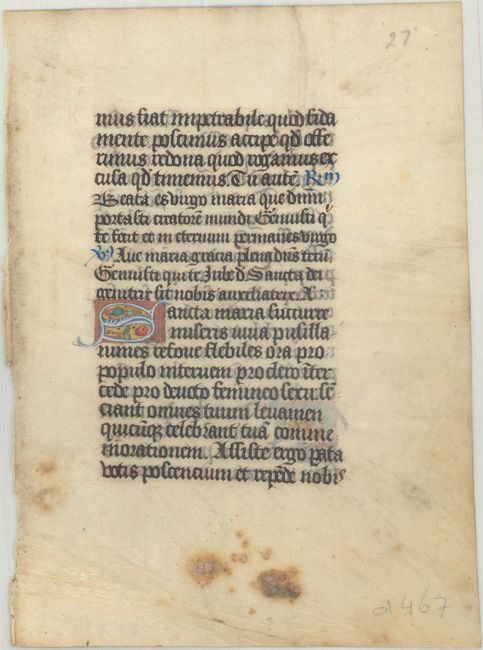 27
mus fiat impetrabile quod fida
mente poscimus accipe qd offe
rimus redona quod rogamus ex
cusa qd timemus. Tu autē. Rm
Beata es virgo maria que dnm
portasti creatorē mundi Genuisti q
te fecit et in eternum permanes virgo
V Aue maria gracia plena dns tecū
Genuisti qui te Jube d. Sancta dei
genitrix sit nobis auxiliatrix. A
Sancta maria succurre
miseris iuua pusilla
nimes refoue flebiles ora pro
populo interueni pro clero inter
cede pro deuoto femineo sexu: sē
ciant omnes tuum leuamen
quicūq celebrant tuā comme
morationem. Assiste ergo pata
votis poscencium et repēde nobis
d 467